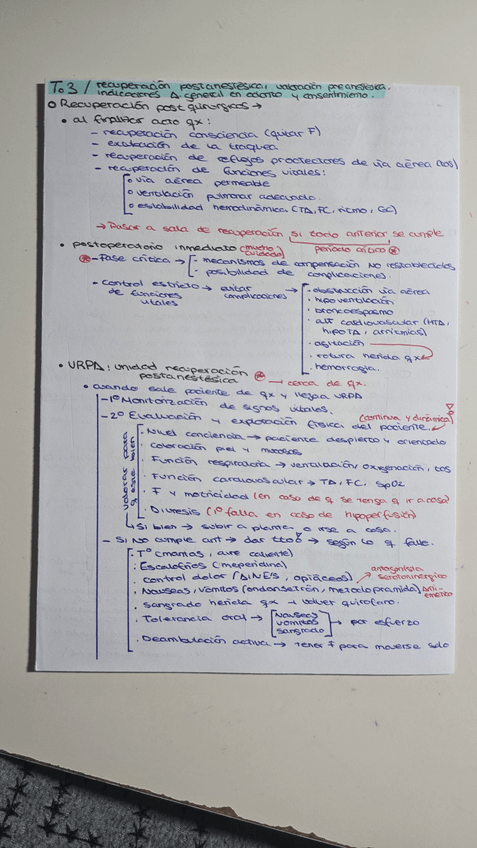 T.3 / recuperación postanestésica, valoración preanestésica,
indicaciones A. general en adulto y consentimiento.
o Recuperación postquirúrgicos →
• al finalizar acto qx:
- recuperación consciencia (quitar F)
- extubación de la tráquea
- recuperación de reflejos protectores de vía aérea (tos)
- recuperación de funciones vitales:
o vía aérea permeable
o ventilación pulmonar adecuada.
o estabilidad hemodinámica (TA, FC, ritmo, GC)
→ Pasar a sala de recuperación si todo anterior se cumple
• postoperatorio inmediato (mucho cuidado) periodo crítico
- Fase crítica → - mecanismos de compensación NO restablecidos
- posibilidad de complicaciones.
- control estricto de funciones vitales → evitar complicaciones →
- obstrucción vía aérea
• hipoventilación
• broncoespasmo
• alt cardiovascular (HTA,
hipoTA, arritmias)
• agitación
• rotura herida qx
• hemorragia.
• URPA: unidad recuperación
postanestésica → cerca de qx.
• cuando sale paciente de qx y llega a URPA
- 1º Monitorización de signos vitales.
- 2º Evaluación y exploración física del paciente. (continua y dinámica)
valorar para q esté bien
• Nivel conciencia → paciente despierto y orientado
• coloración piel y mucosas
• Función respiratoria → ventilación/oxigenación, tos
• Función cardiovascular → TA, FC, SpO2
• F y motricidad (en caso de q se tenga q ir a casa)
• Diuresis (1º falla en caso de hipoperfusión)
↳ Si bien → subir a planta o irse a casa.
- Si NO cumple ant → dar tto → según lo q falle.
• Tº (mantas, aire caliente)
• Escalofríos (meperidina)
• control dolor (AINES, opiáceos)
• Náuseas, vómitos (ondansetrón, metoclopramida) antagonista serotoninérgico Anti-emético
• sangrado herida qx → volver quirófano.
• Tolerancia oral → náuseas
vómitos → por esfuerzo
sangrado
• Deambulación activa → tener F para moverse solo